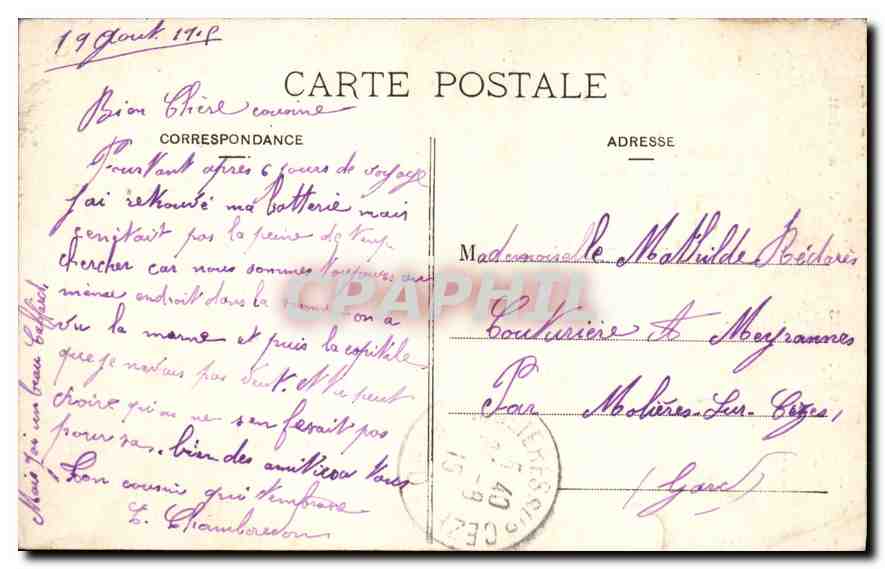 19 Aout 1915
CARTE POSTALE
Bien Chère cousine
CORRESPONDANCE
ADRESSE
Pourtant après 6 jours de voyage
jai retrouvé ma batterie mais
cenitait pas la peine de
chercher car nous sommes toujours au
même endroit dans la on a
vu la marne et puis la capitale
que je navais pas veut. Il peut
choire qu'on ne sen ferait pas
pour sa. bien des amities a vous
Ton cousin qui tembrasse
E. Chamboredon
Mais jai un beau
Mademoiselle Mathilde Réclarès
Couturière A Meyrannes
Par Molières-Sur-Cèzes,
(Gard)
CPAPHIL
MOLIERES SUR CEZE
40
15 -9